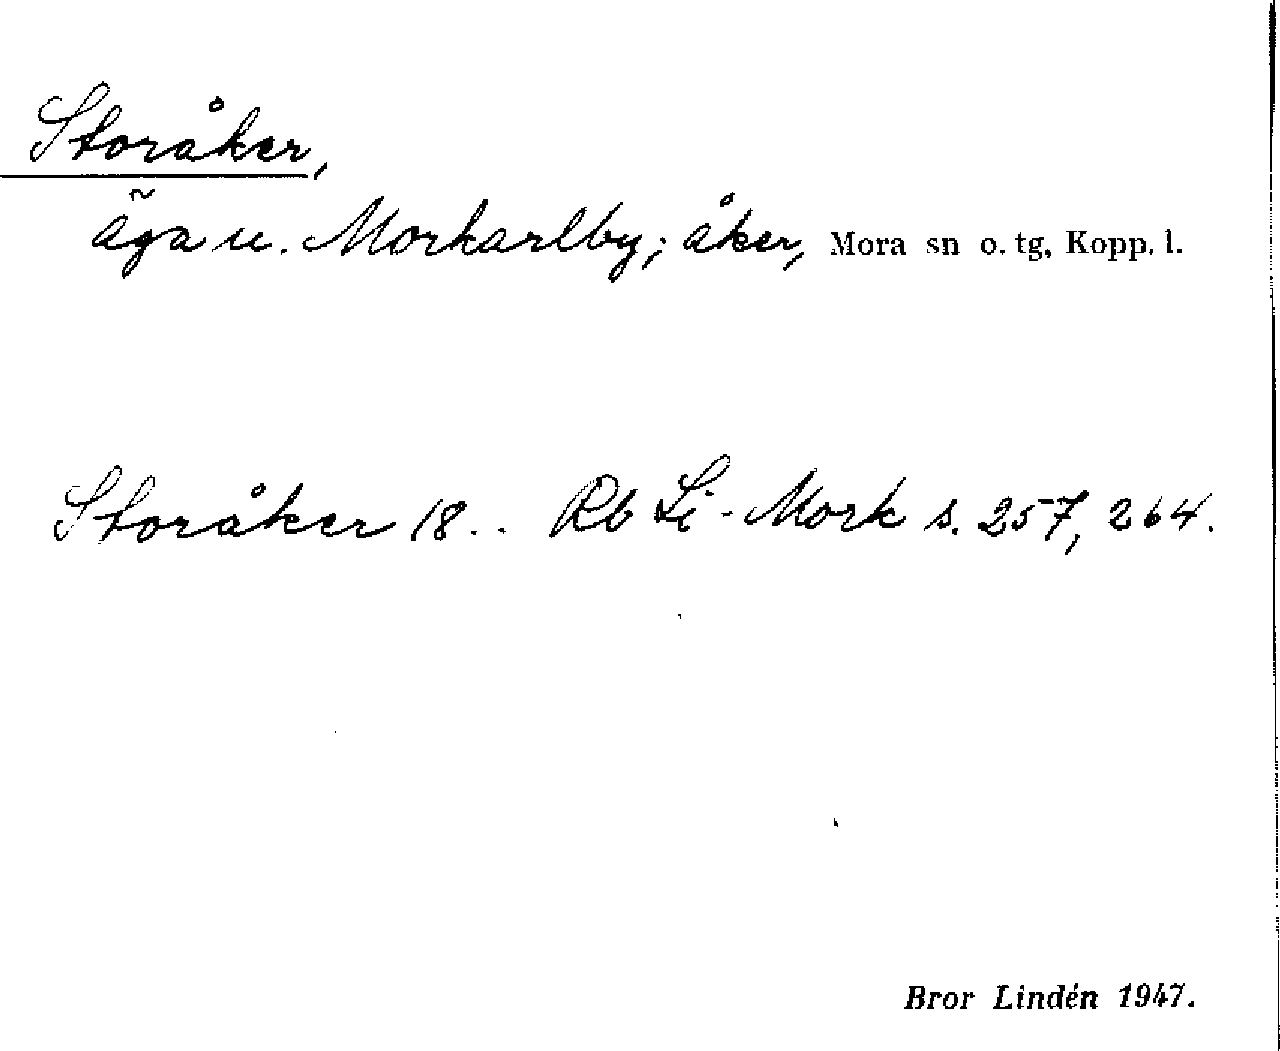 Storåker,
äga u. Morkarlby; åker, Mora sn o. tg, Kopp. l.
Storåker 18.. Rb Li-Mork s. 257, 264.
Bror Lindén 1947.